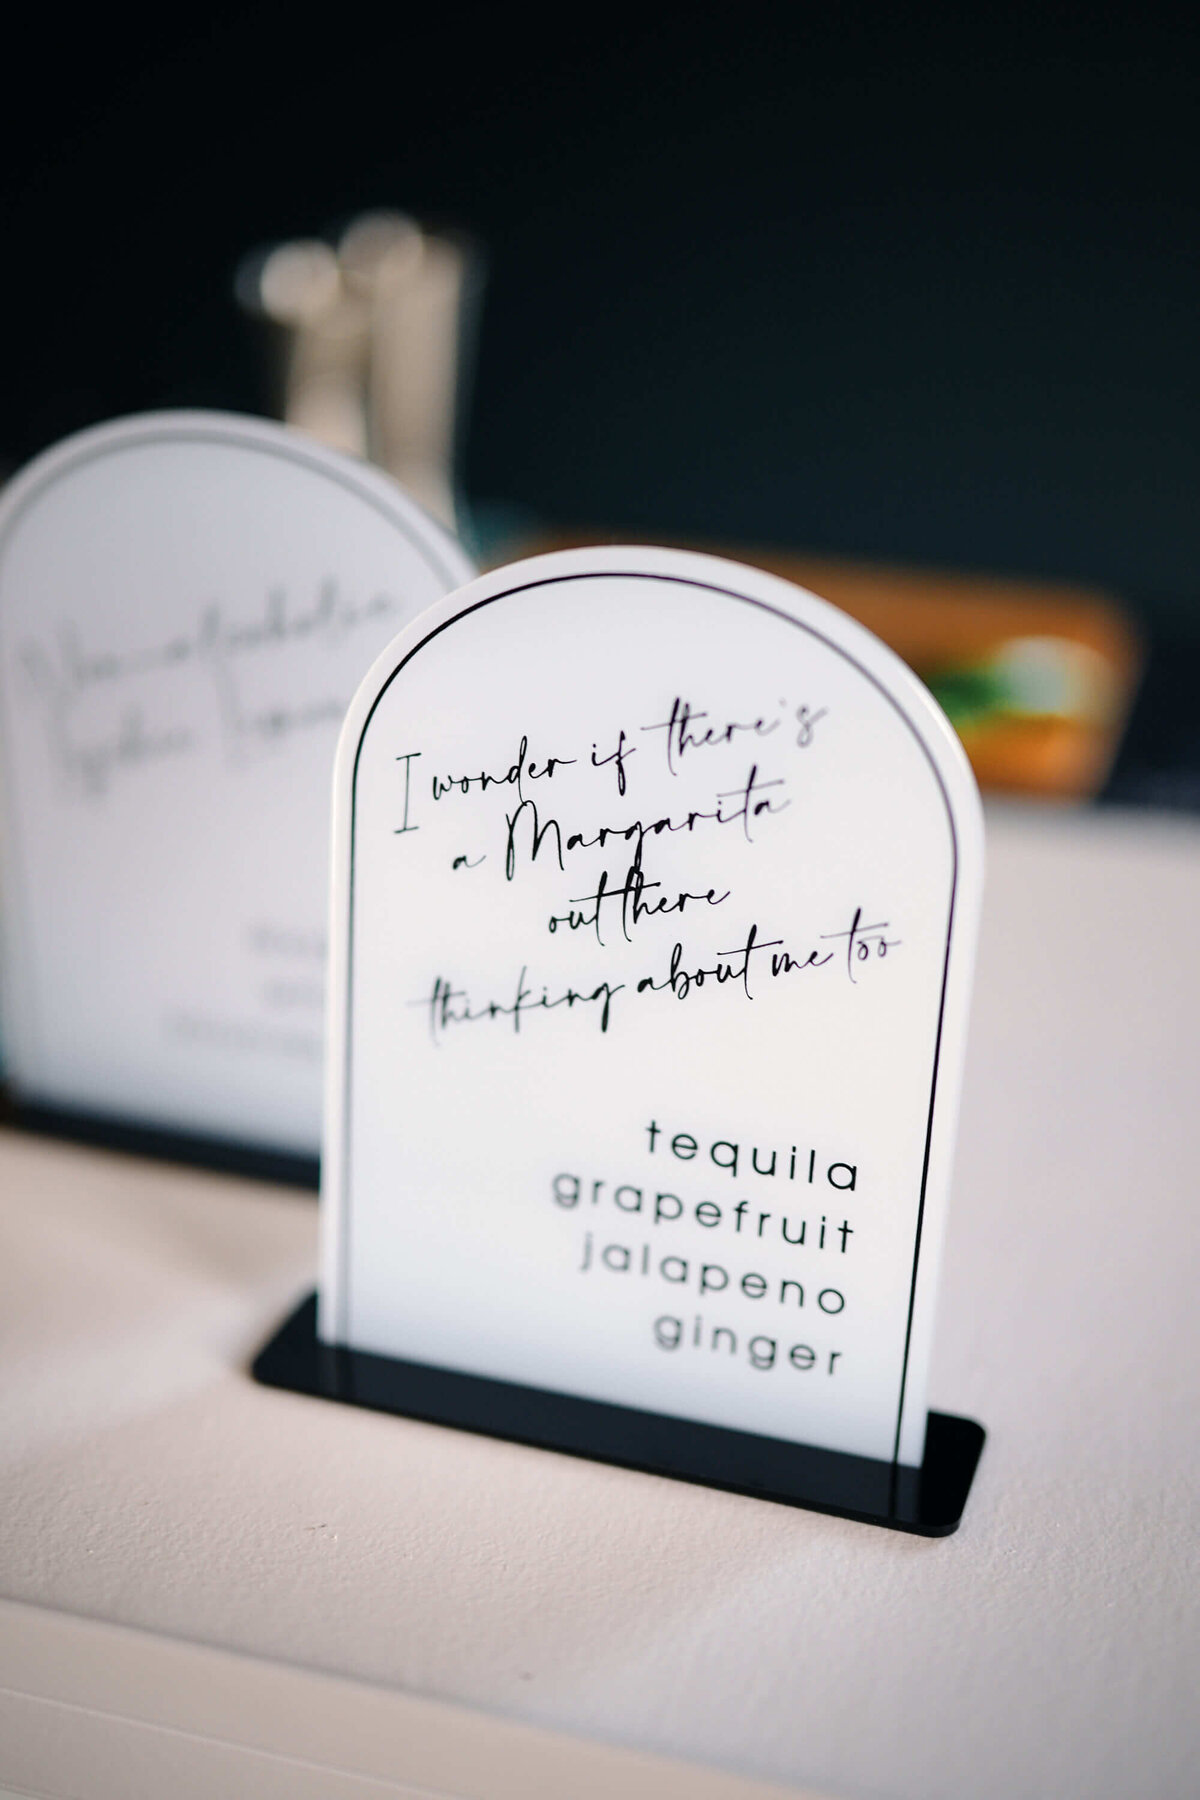 I wonder if there's
a Margarita
out there
thinking about me too
tequila
grapefruit
jalapeno
ginger
Non-alcoholic